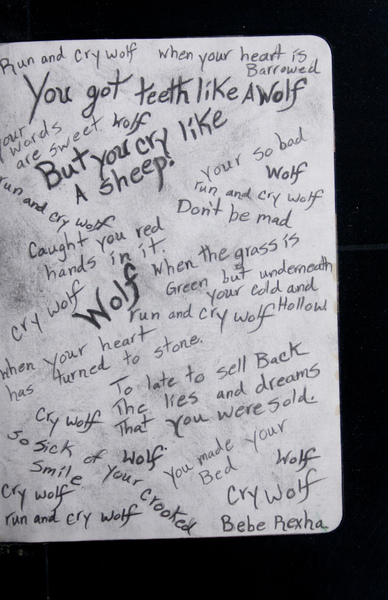 Run and cry wolf when your heart is
Barrowed
You got teeth like A Wolf
your words
are sweet Wolf
But you cry like
A sheep!
your so bad
Wolf
run and cry wolf
run and cry wolf
Don't be mad
Caught you red
hands in it.
When the grass is
Green but underneath
your cold and
Hollow
cry wolf
Wolf
run and cry wolf
when your heart
has turned to stone.
To late to sell Back
The lies and dreams
That you were sold.
Cry wolf
So sick of Wolf.
Smile your crooked
you made your
Bed
Wolf
Cry wolf
Cry Wolf
run and cry wolf
Bebe Rexha